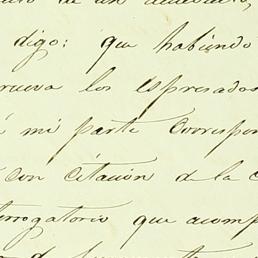 digo: que habiendo
rueva los espresados
mi parte Correspon
con citación de la C
terrogatorio que acomp